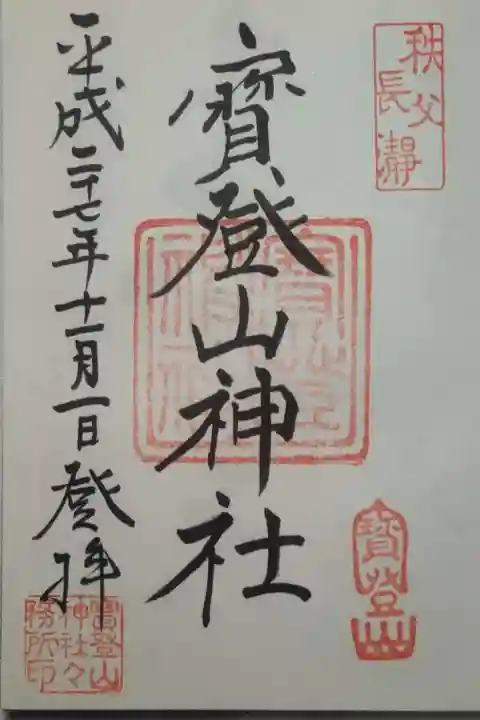 秩父
長瀞
寳登山
寳登山神社
平成二十七年十一月一日登拝
寳登山
神社々
務所印